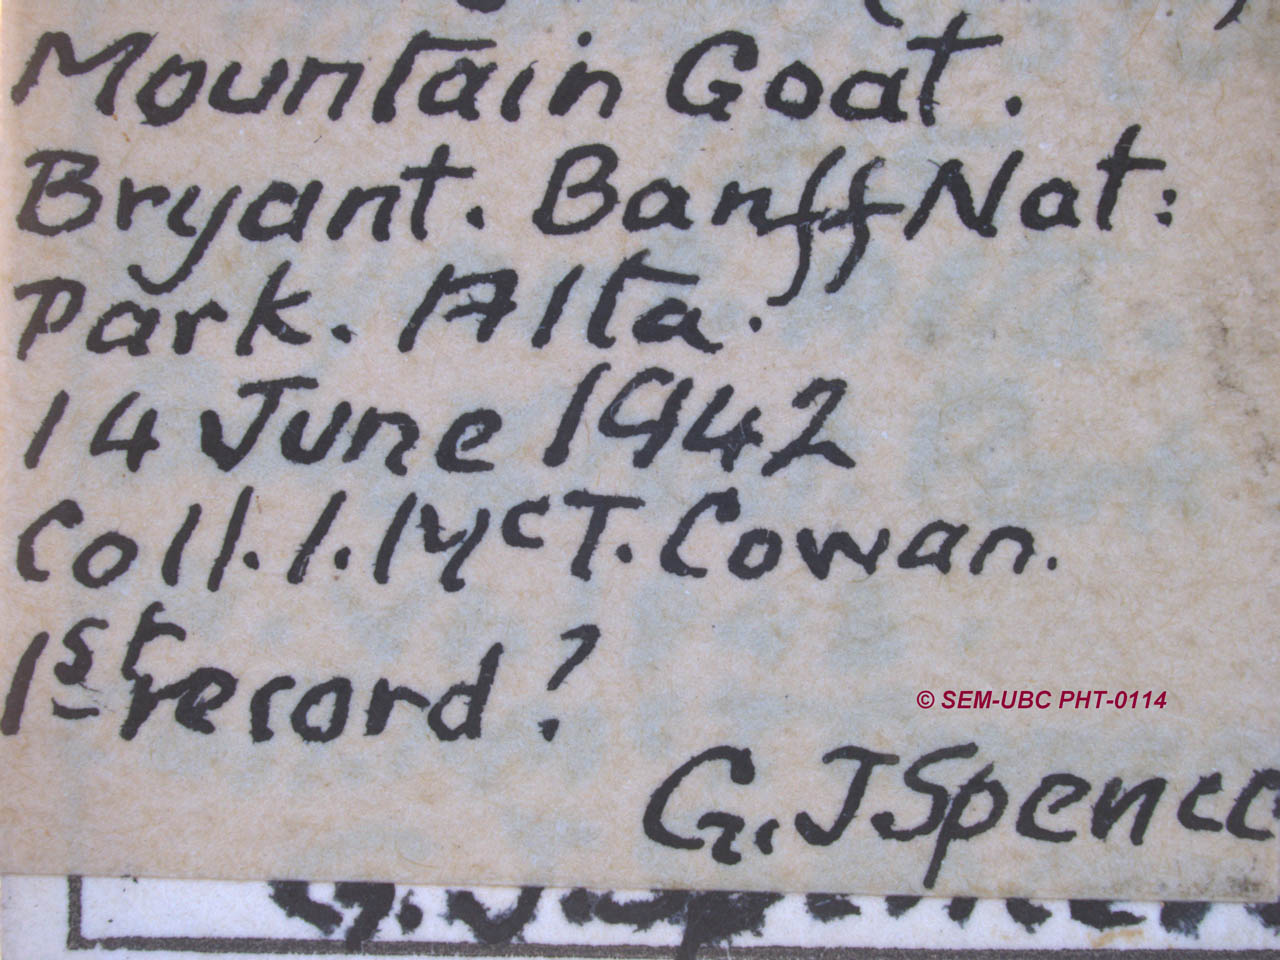 Mountain Goat.
Bryant. Banff Nat:
Park. Alta.
14 June 1942
Coll. I. McT. Cowan.
1st record?
© SEM-UBC PHT-0114
G. J Spence
G. J. Spencer